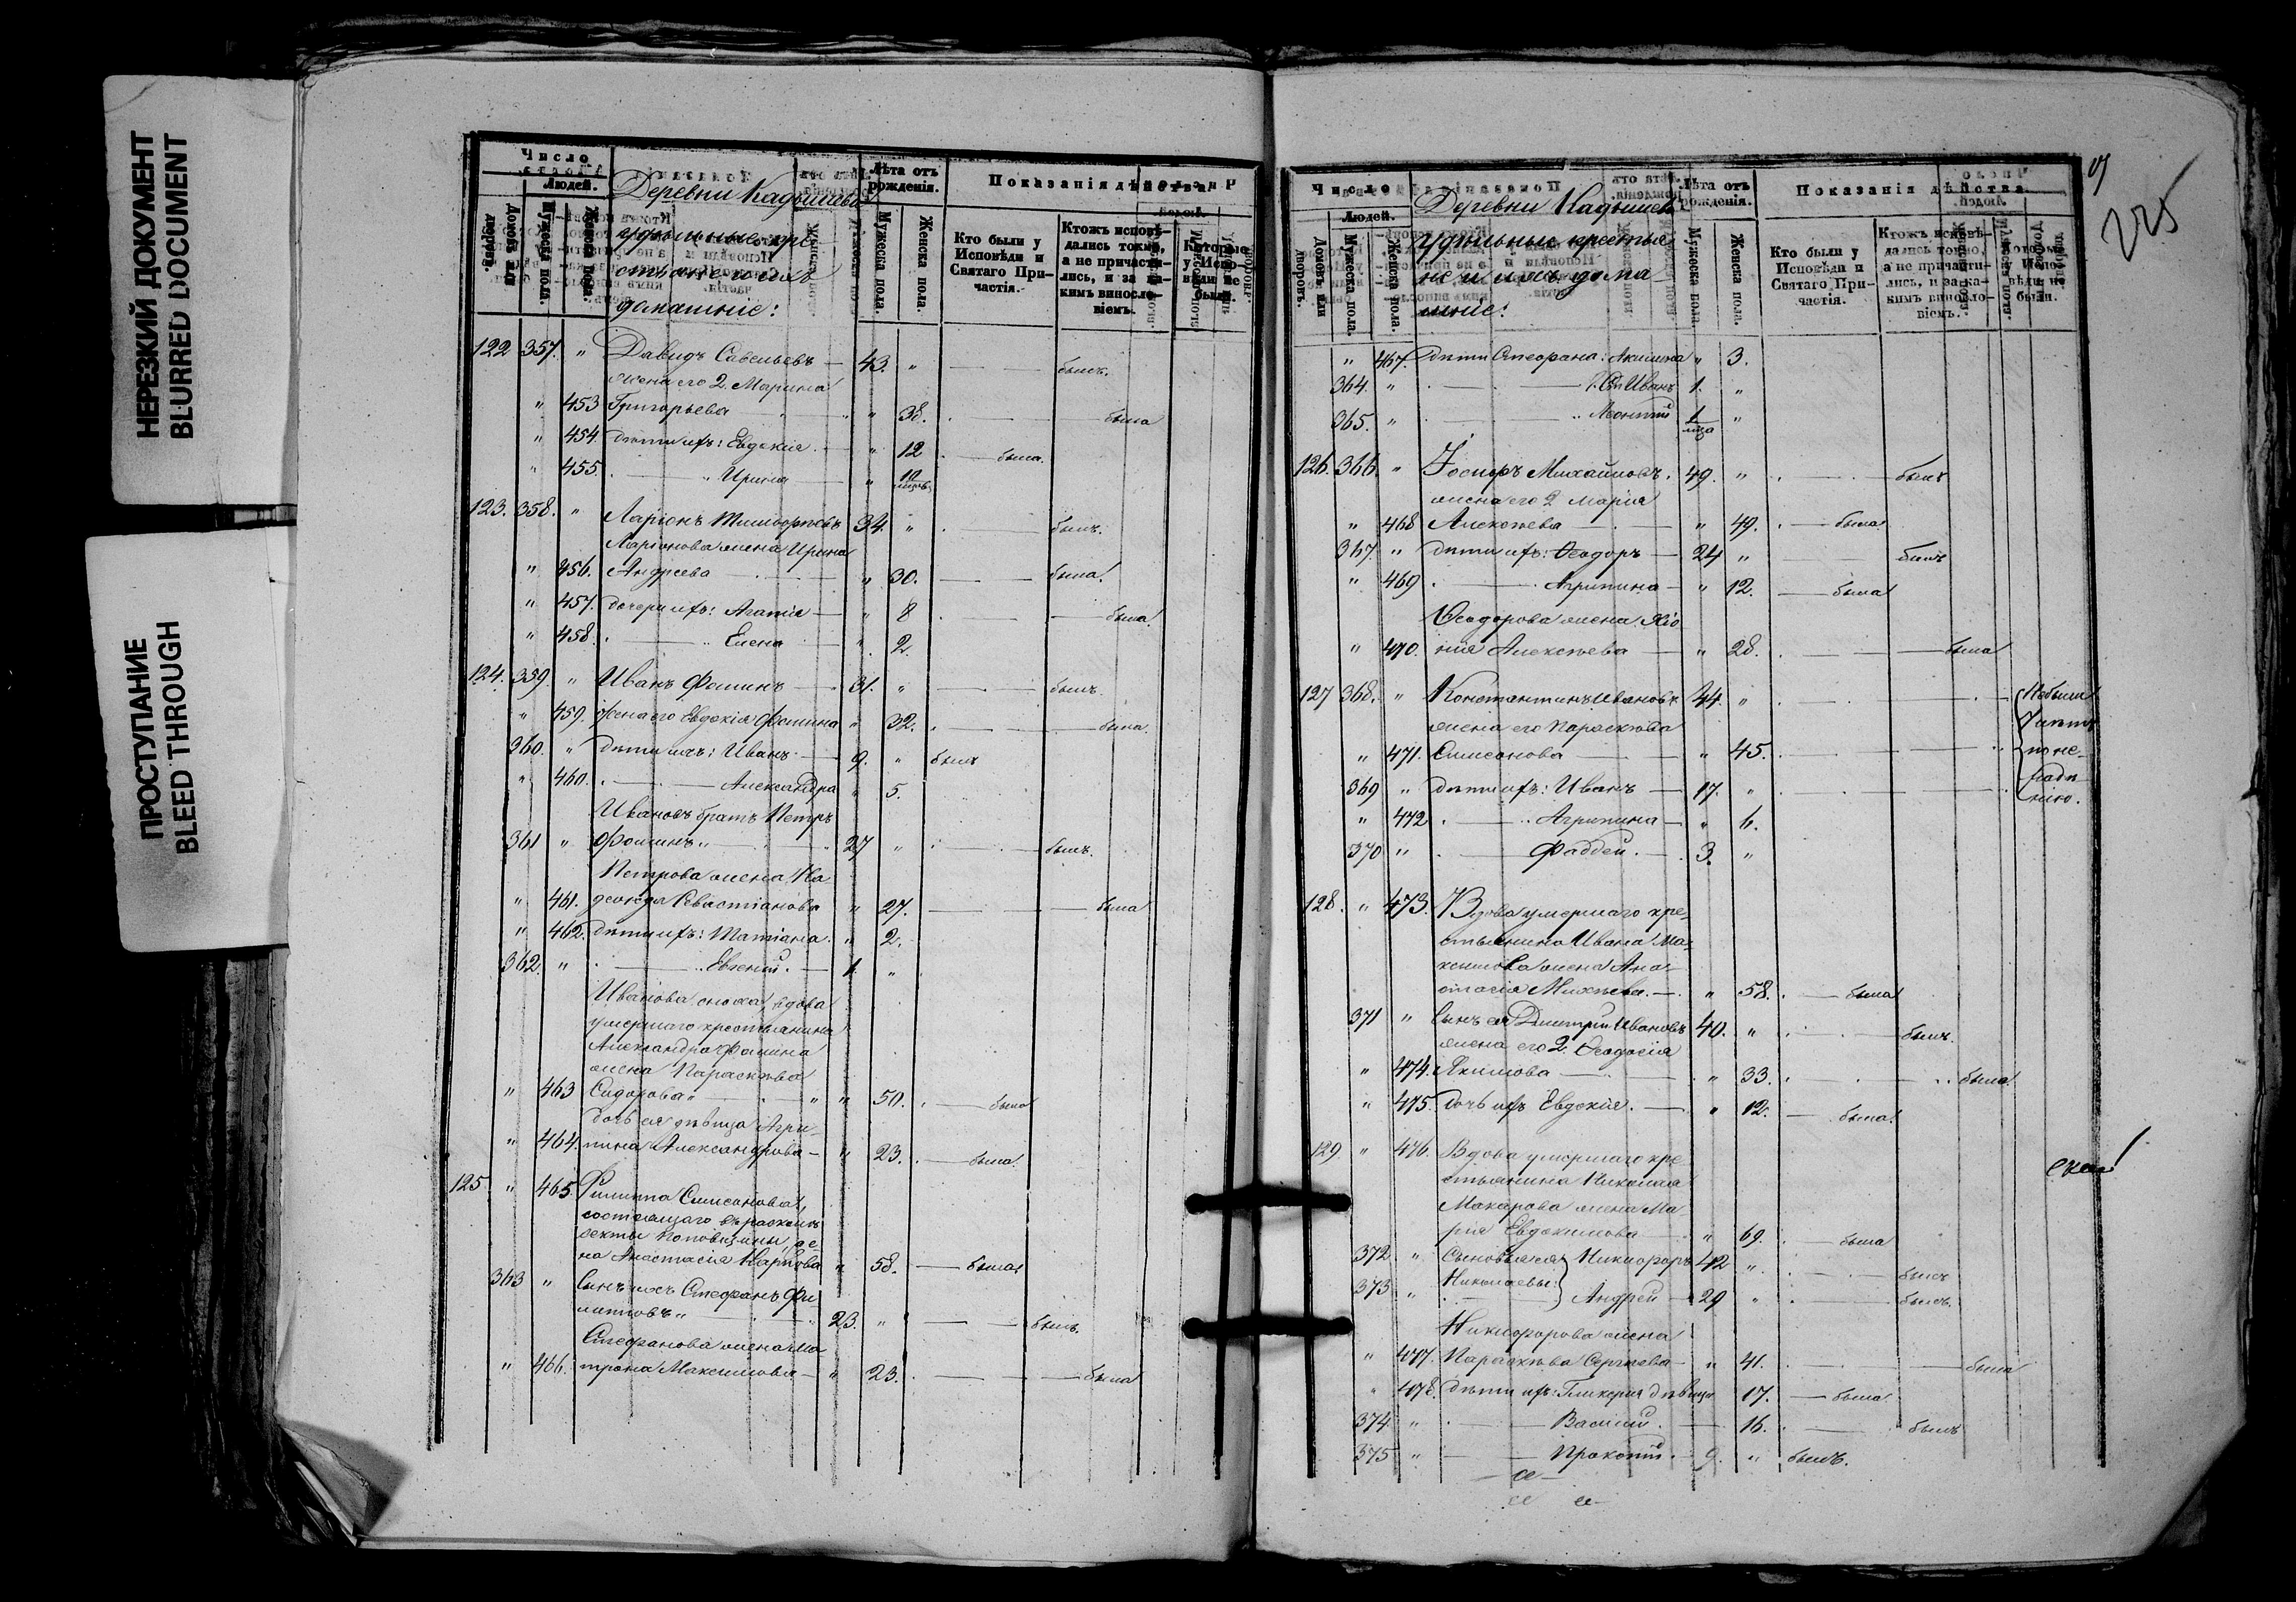 НЕРЕЗКИЙ ДОКУМЕНТ
BLURRED DOCUMENT
ПРОСТУПАНИЕ
BLEED THROUGH
Число
Людей.
Домовъ или дворовъ.
Мужеска пола.
Женска пола.
Деревни Кадышева
удѣльные кре-
стьяне и ихъ
домашніе:
Лѣта отъ рожденія.
Мужеска пола.
Женска пола.
Показанія дѣйства.
Кто были у Исповѣди и Святаго Причастія.
Ктожъ исповѣ-
дались токмо,
а не причасти-
лись, и за ка-
кимъ виносло-
віемъ.
Которые у Исповѣди не были.
122 357. " Давидъ Савельевъ — 43. " — былъ.
жена его 2. Марина
" 453 Григорьева — " 38. — была
" 454. дѣти ихъ: Евдокія — " 12 — была.
" 455. — " Ирина — "
123. 358. " Ларіонъ Тимоѳеевъ 34. " — былъ.
Ларіонова жена Ирина
" 456. Андреева — " 30. — была.
" 457. дочери ихъ: Агапія — " 8 — была.
" 458. — Елена " 2.
124. 359. " Иванъ Фоминъ — 31. " — былъ.
" 459. жена его Евдокія Фомина " 32. — была.
360. " дѣти ихъ: Иванъ — 9. " былъ
" 460. — Александра " 5.
Ивановъ братъ Петръ
361 " Фоминъ " — 27 " — былъ.
Петрова жена
" 461. Севастіанова " 27. — была
" 462. дѣти ихъ: Татіана. " 2.
362. " — Евгеній. — 1. "
Иванова сноха, вдова
умершаго крестьянина
Александра Фомина
жена Параскѣва
" 463 Сидорова " — " 50. — была
дочь ея дѣвица Агри-
" 464. пина Александрова — " 23. — была.
125. " 465. Филиппа Симеонова,
состоящаго въ расколѣ
секты поповщины, же-
на Анастасія Карпова " 58. — была
363 " Сынъ ихъ Стефанъ Фи-
липповъ " — 23. " — былъ.
Стефанова жена Ма-
" 466. трона Максимова — " 23. — была
225
Число
Людей.
Домовъ или дворовъ.
Мужеска пола.
Женска пола.
Деревни Кадышева
удѣльные крестья-
не и ихъ дома-
шніе:
Лѣта отъ рожденія.
Мужеска пола.
Женска пола.
Показанія дѣйства.
Кто были у Исповѣди и Святаго Причастія.
Ктожъ исповѣ-
дались токмо,
а не причасти-
лись, и за ка-
кимъ виносло-
віемъ.
Которые у Исповѣди не были.
" 467. дѣти Стефана: Акилина " 3.
364. " — Иванъ 1. "
365. " — Леонтій 1 мца "
126. 366. " Іосифъ Михайловъ. 49. " — былъ
жена его 2 Марія
" 468 Алексѣева — " 49. — была.
367. " дѣти ихъ: Ѳеодоръ — 24 " — былъ
" 469 — Агрипина — " 12. — была
Ѳеодорова жена Хіо-
" 470. нія Алексѣева — " 28. — была
127 368. " Константинъ Ивановъ 44. " — Небыли
жена его Параскѣва
" 471. Симеонова — " 45. — по не-
369 " дѣти ихъ: Иванъ — 17. " — радѣ-
нію.
" 472 — Агрипина — " 6.
370 " — Фаддей. — 3. "
128. " 473. Вдова умершаго кре-
стьянина Ивана Ма-
ксимова жена Ана-
стасія Михѣева. — " 58. — была
371 " Сынъ ея Дмитрій Ивановъ 40. " — былъ.
жена его 2. Ѳеодосія
" 474. Якимова — " 33. — была.
" 475. дочь ихъ Евдокія. — " 12. — была.
129 " 476. Вдова умершаго кре-
стьянина Николая
Макарова жена Ма-
рія Евдокимова — " 69. — была
372 " Сыновья ея Никифоръ 42 " — былъ
373 " Николаевы: Андрей — 29 " — былъ.
Никифорова жена
" 477. Параскѣва Сергѣева — " 41. — была
" 478. дѣти ихъ: Гликерія дѣвица 17. — была.
374. " — Василій. — 16. — былъ
375 " — Прокопій. — 9. " былъ.